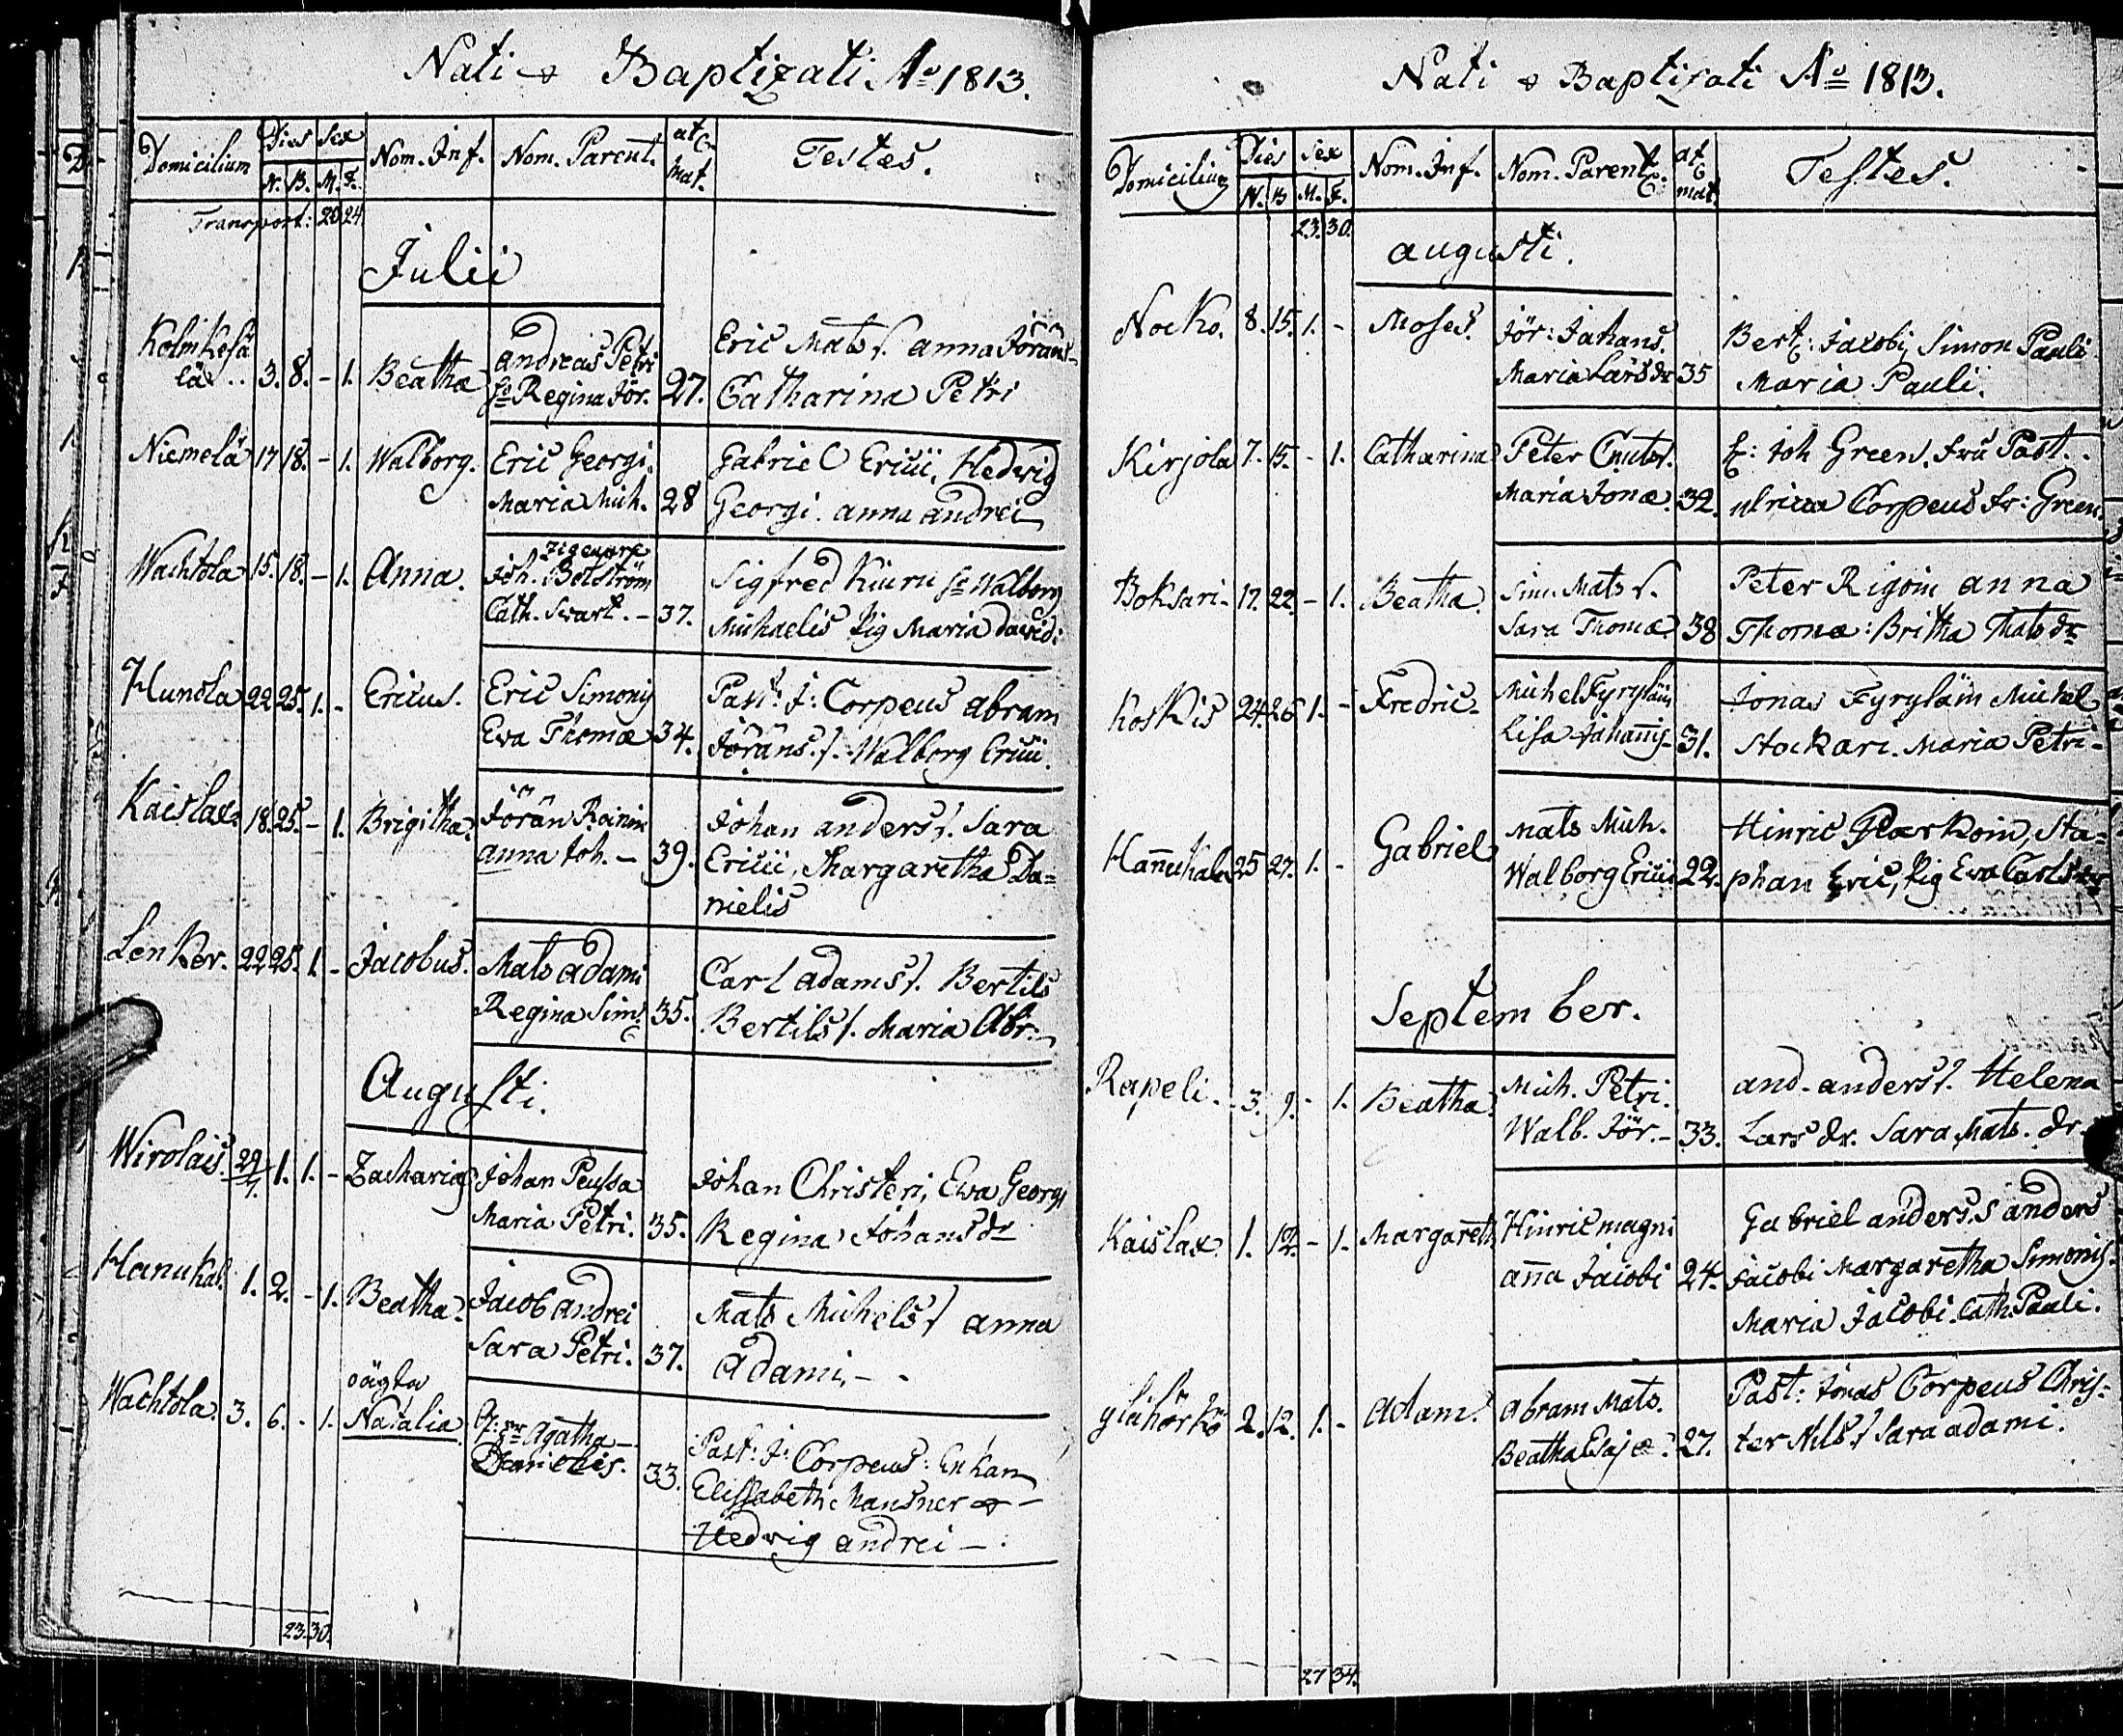 Nati & Baptizati Aº 1813.
Domicilium Dies Sex Nom. Inf. Nom. Parent. æt. mat. Testes.
N. B. M. F.
Transport: 20 24
Julii
Kolmikesä
lä .. 3. 8. - 1. Beatha Andreas Petri 27. Eric Mats f. Anna Jörans
Regina Jör. Catharina Petri
Niemelä 17 18. - 1. Walborg. Eric Georgi. Gabriel Ericii, Hedvig
Maria Mich. 28 Georgi. Anna Andrei
Wachtola 15. 18. - 1. Anna. Zigenare
Joh. Bolström Sigfred Kiuru Walborg
Cath. Svart. - 37. Michaelis Pig Maria David:
Hunola 22 25. 1. - Ericus. Eric Simonis Past: J: Corpeus Abram
Eva Thomæ 34. Jörans. f. Walborg Ericii.
Kaislax. 18. 25. - 1. Brigitha. Jöran Roinin Johan Anders f. Sara
Anna Joh. - 39. Ericii, Margaretha Da=
nielis
Lenker. 22 25. 1. - Jacobus. Mats Adami Carl Adams f. Bertils
Regina Sim. 35. Bertils f. Maria Abr:
Augusti.
Wirolais. 29/7. 1. 1. - Zacharias Johan Peussa Johan Christeri, Eva Georgi
Maria Petri. 35. Regina Johans dr
Hanukal. 1. 2. - 1. Beatha. Jacob Andrei Mats Michels f Anna
Sara Petri. 37. Adami. -
Wachtola. 3. 6. - 1. oägta
Natalia Agatha Past: J: Corpeus: Enkan
Danielis. 33. Elissabeth Mansner &
Hedvig Andrei -
23. 30.
Nati & Baptizati Aº 1813.
Domicilium Dies Sex Nom. Inf. Nom. Parent. æt. mat. Testes.
N. B. M. F.
23. 30.
Augusti.
Nocko. 8. 15. 1. - Moses. Jör: Johans. Bert: Jacobi, Simon Pauli
Maria Lars dr 35 Maria Pauli.
Kirjola 7. 15. - 1. Catharina Peter Cnuts f. Joh Green, Fru Past.
Maria Jonæ. 32. Ulrica Corpeus Fr: Green.
Boksari. 17. 22. - 1. Beatha. Sim. Mats f. Peter Rigoin Anna
Sara Thomæ 38 Thomæ: Britha Mats dr
Koskis 24. 26 1. - Fredric. Michel Fyryläin Jonas Fyryläin Michel
Lisa Johannis 31. Stockari. Maria Petri -
Hannukala 25 27. 1. - Gabriel Mats Mich. Hinric Parkoin, Sta=
Walborg Ericii 22. phan Eric, Pig Eva Carls dr
September.
Rapeli. 3. 9. - 1. Beatha. Mich. Petri. And. Anders f. Helena
Walb. Jör. - 33. Lars dr. Sara Mats. dr.
Kaislax. 1. 12. - 1. Margareth. Hinric Magni Gabriel Anders. f Anders
Anna Jacobi 24. Jacobi Margaretha Simonis.
Maria Jacobi. Cath. Pauli.
Ylihörkö 2. 12. 1. - Adam. Abram Mats. Past: Jonas Corpeus Chris=
Beatha Esajæ. 27. ter Nils f Sara Adami.
27 34.